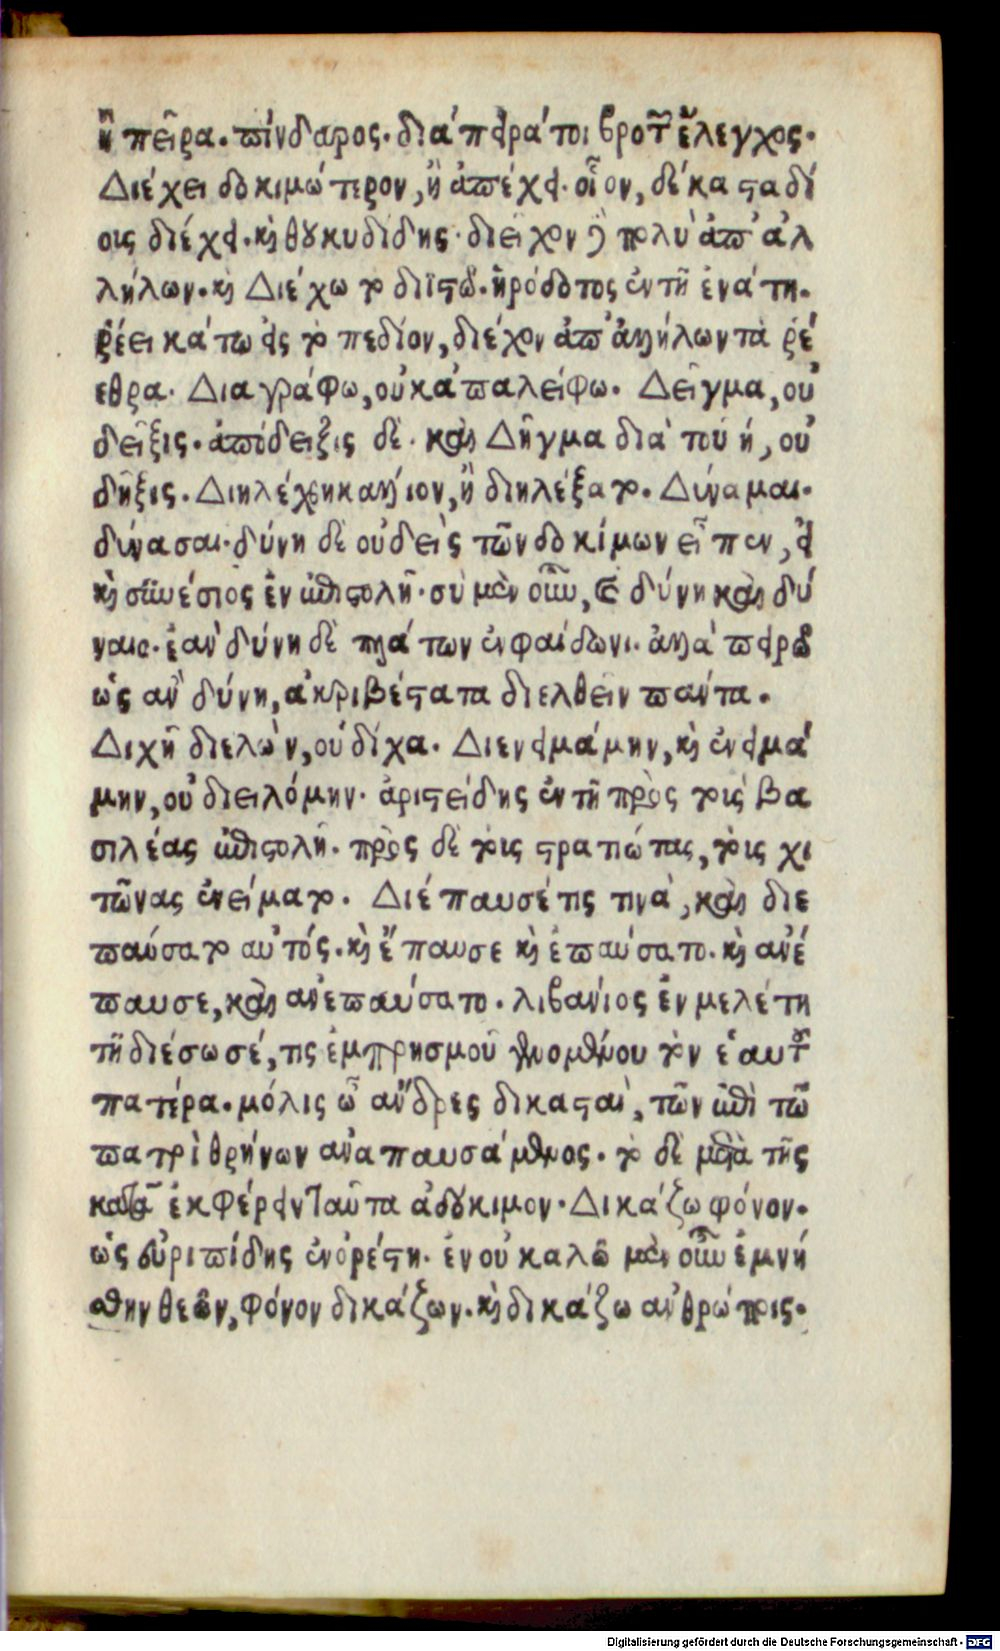 ἢ πεῖρα. πίνδαρος. διάπειρά τοι βροτῶν ἔλεγχος.
Διέχει δοκιμώτερον, ἢ ἀπέχει. οἷον, δέκα σταδί
οις διέχει. καὶ θουκυδίδης. διεῖχον δὲ πολὺ ἀπ' ἀλ
λήλων. καὶ Διέχω τὸ διϊστῶ. ἡρόδοτος ἐν τῆ ἐνάτη.
ῥέει κάτω εἰς τὸ πεδίον, διέχον ἀπ' ἀλλήλων τὰ ῥέ
εθρα. Διαγράφω, οὐκ ἀπαλείφω. Δεῖγμα, οὐ
δεῖξις. ἀπόδειξις δέ. καὶ Δῆγμα διὰ τοῦ ή, οὐ
δῆξις. Διηλέχθη κάλλιον, ἢ διηλέξατο. Δύναμαι.
δύνασαι. δύνη δὲ οὐδεὶς τῶν δοκίμων εἶπεν, εἰ
καὶ συνέσιος ἐν ἐπιστολῆ. σὺ μὲν οὖν, καὶ δύνη καὶ δύ
ναιο. ἐὰν δύνη δὲ πλάτων ἐν φαίδωνι. ἀλλὰ πειρῶ
ὡς ἂν δύνη, ἀκριβέστατα διελθεῖν πάντα.
Διχῆ διελών, οὐ δίχα. Διενειμάμην, καὶ ἐνειμά
μην, οὐ διειλόμην. ἀριστείδης ἐν τῆ πρὸς τοὺς βα
σιλέας ἐπιστολῆ. πρὸς δὲ τοὺς στρατιώτας, τοὺς χι
τῶνας ἐνείματο. Διέπαυσέ τις τινά, καὶ διε
παύσατο αὐτός. καὶ ἔπαυσε καὶ ἐπαύσατο. καὶ ἀνέ
παυσε, καὶ ἀνεπαύσατο. λιβανίος ἐν μελέτη
τῆ διέσωσέ, τις ἐμπρησμοῦ γενομένου τὸν ἑαυτοῦ
πατέρα. μόλις ὦ ἄνδρες δικασταί, τῶν ἐπὶ τῶ
πατρὶ θρήνων ἀναπαυσάμενος. τὸ δὲ μετὰ τῆς
κατά ἐκφέρειν ταῦτα ἀδόκιμον. Δικάζω φόνον.
ὡς εὐριπίδης ἐν ὀρέστη. ἐν οὐ καλῶ μὲν οὖν ἐμνή
σθην θεῶν, φόνον δικάζων. καὶ δικάζω ἀνθρώποις.
Digitalisierung gefördert durch die Deutsche Forschungsgemeinschaft - DFG